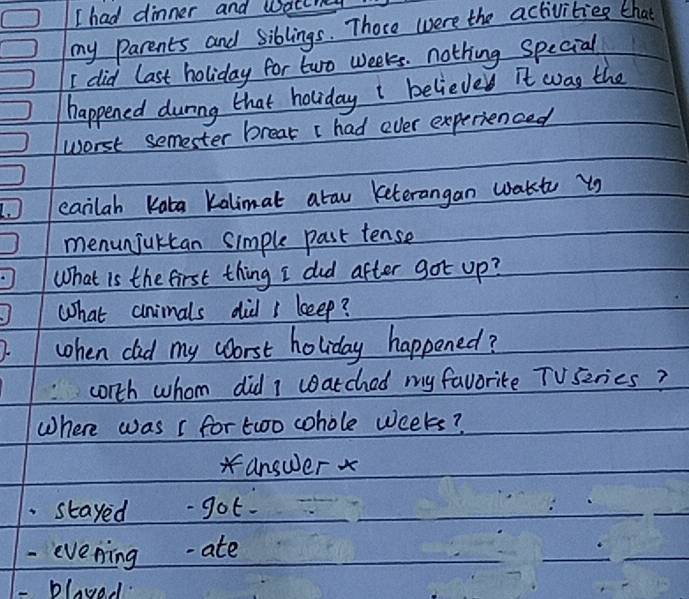 I had dinner and watched
my parents and siblings. Those were the activities that
I did last holiday for two weeks. nothing special
happened during that holiday I believed it was the
worst semester break I had ever experienced
carilah kata kalimat atau keterangan waktu yg
menunjukkan simple past tense
What is the first thing I did after got up?
What animals did I keep?
When did my worst holiday happened?
with whom did I watched my favorite TV series?
Where was I for two whole weeks?
* answer *
- stayed - got -
- evening - ate
- played